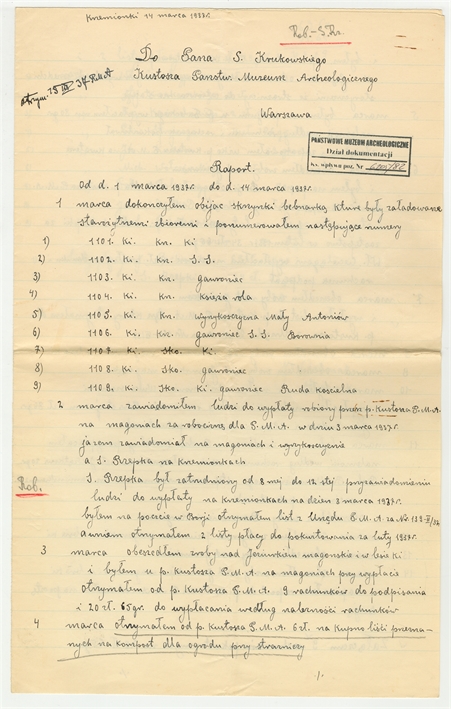 Krzemionki 14 marca 1937r.
Rob.-S.Kr.
Do Pana S. Krukowskiego
Kustosza Państw. Muzeum Archeologicznego
otrzym. 15 III 37 R.
Warszawa
PAŃSTWOWE MUZEUM ARCHEOLOGICZNE
Dział dokumentacji
Ks. wpływu poz. Nr
Raport.
Od d. 1 marca 1937r. do d. 14 marca 1937r.
1 marca dokończyłem obijać skrzynki bebnarką kture były załadowane
starożytnemi zbiorami i ponumerowałem następujące numery
1) 1101. Ki. Kn. Ki
2) 1102. Ki. Kn. S.S.
3) 1103. Ki. Kn. gawroniec
4) 1104. Ki. Kn. księża rola
5) 1105. Ki. Kn. wynykoscyzna Mały Antoniów
6) 1106. Ki. Kn. gawroniec S.S. Borownia
7) 1107. Ki. Sko. Ki.
8) 1108. Ki. Sko. gawroniec
9) 1109. Ki. Sko. Ki. gawroniec Ruda Kościelna
2 marca zawiadomiłem ludzi do wypłaty robiony przez p. Kustosza P.M.A.
na magoniach za robociznę dla P.M.A. w dniu 3 marca 1937r.
ja zam zawiadomiał na magoniach i wynykoscyźnie
a S. Rzepka na Krzemionkach
Rob.
S. Rzepka był zatrudniony od 8 mej do 12 stej przy zawiadomieniu
ludzi do wypłaty na Krzemionkach na dzień 3 marca 1937r.
byłem na poczcie w Boryi otrzymałem list z Urzędu P.M.A. za Nr.
a w niem otrzymałem 2 listy płacy do pokwitowania za luty 1937r.
3 marca obeszedłem zroby nad magońskie i w lisiki
i byłem u p. Kustosza P.M.A. na magoniach przy wypłacie
otrzymałem od p. Kustosza P.M.A. 9 rachunków do podpisania
i 20 zł. 65 gr. do wypłacania według należności rachunków
4 marca otrzymałem od p. Kustosza P.M.A. 6 zł. na kupno liści przezna-
nych na kompost dla ogrodu przy strażnicy
1.